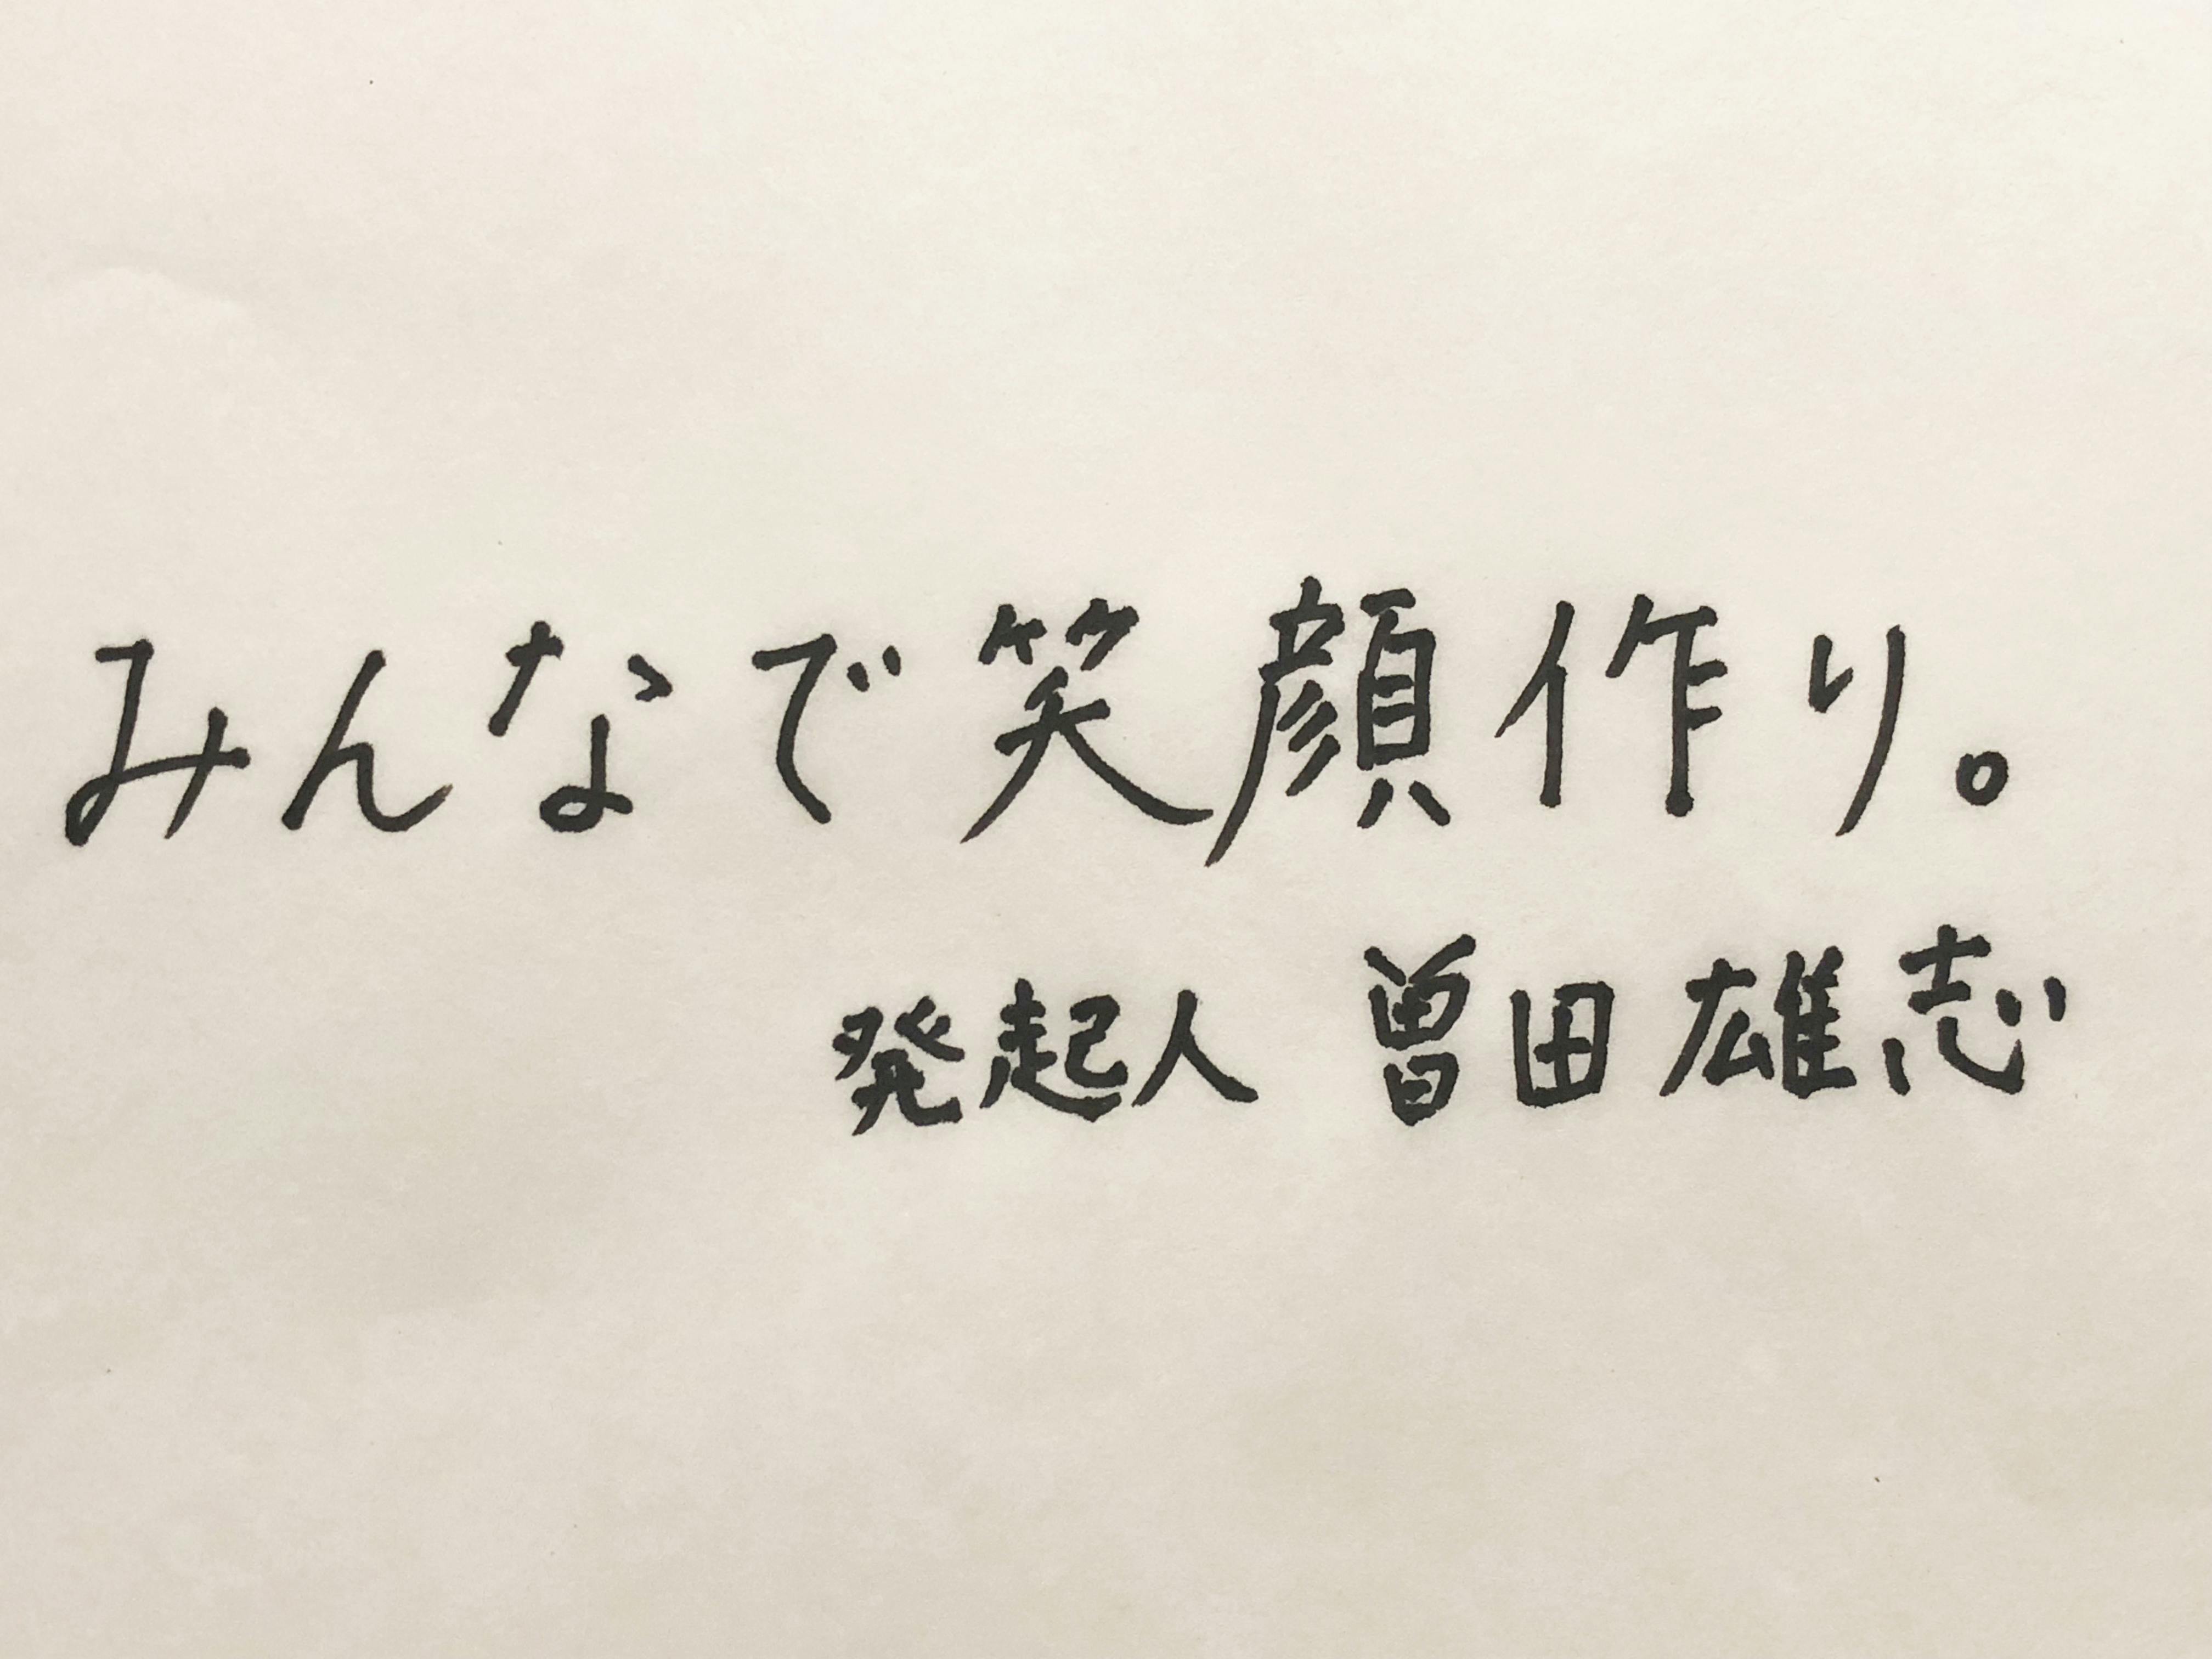 みんなで笑顔作り。
発起人 曽田雄志